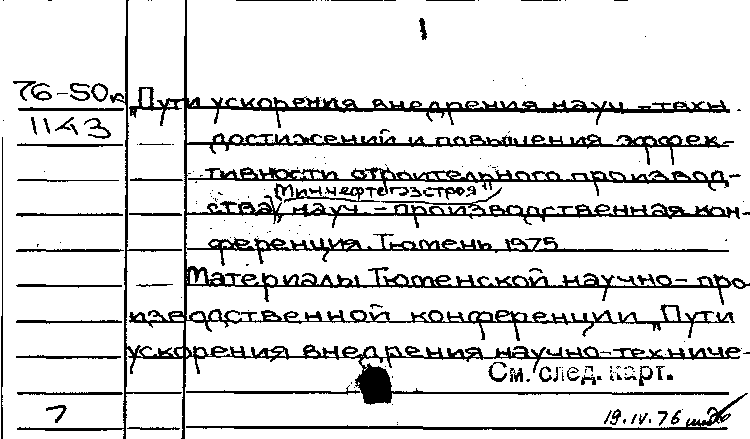 1
76-50к „Пути ускорения внедрения науч.-техн.
1143 достижений и повышения эффек-
тивности строительного производ-
Миннефтегазстроя"
ства, науч.-производственная кон-
ференция. Тюмень, 1975
Материалы Тюменской научно-про-
изводственной конференции „Пути
ускорения внедрения научно-техниче-
См. след. карт.
7 19.IV.76